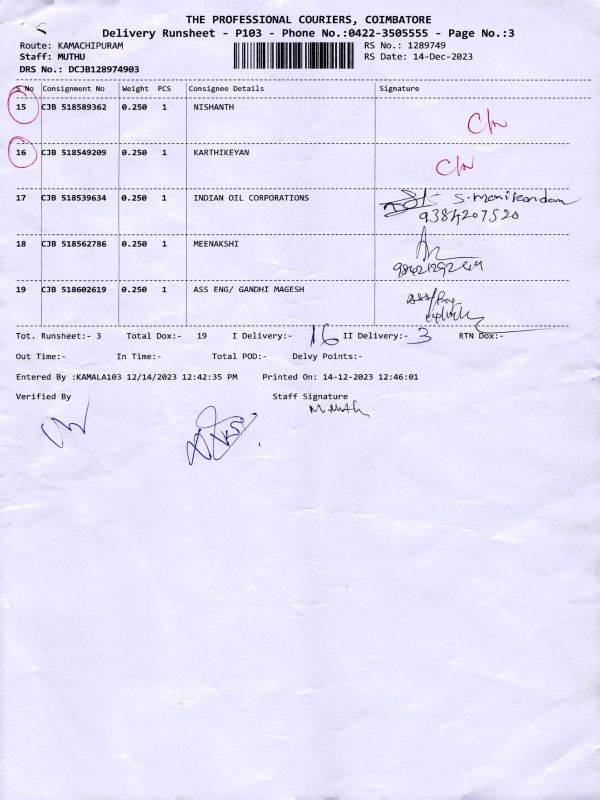 THE PROFESSIONAL COURIERS, COIMBATORE
Delivery Runsheet - P103 - Phone No.:0422-3505555 - Page No.:3
Route: KAMACHIPURAM RS No.: 1289749
Staff: MUTHU RS Date: 14-Dec-2023
DRS No.: DCJB128974903
S No Consignment No Weight PCS Consignee Details Signature
15 CJB 518589362 0.250 1 NISHANTH
16 CJB 518549209 0.250 1 KARTHIKEYAN
17 CJB 518539634 0.250 1 INDIAN OIL CORPORATIONS S. Manikandan
9384207520
18 CJB 518562786 0.250 1 MEENAKSHI
19 CJB 518602619 0.250 1 ASS ENG/ GANDHI MAGESH
Tot. Runsheet:- 3 Total Dox:- 19 I Delivery:- 16 II Delivery:- 3 RTN Dox:-
Out Time:- In Time:- Total POD:- Delvy Points:-
Entered By :KAMALA103 12/14/2023 12:42:35 PM Printed On: 14-12-2023 12:46:01
Verified By Staff Signature